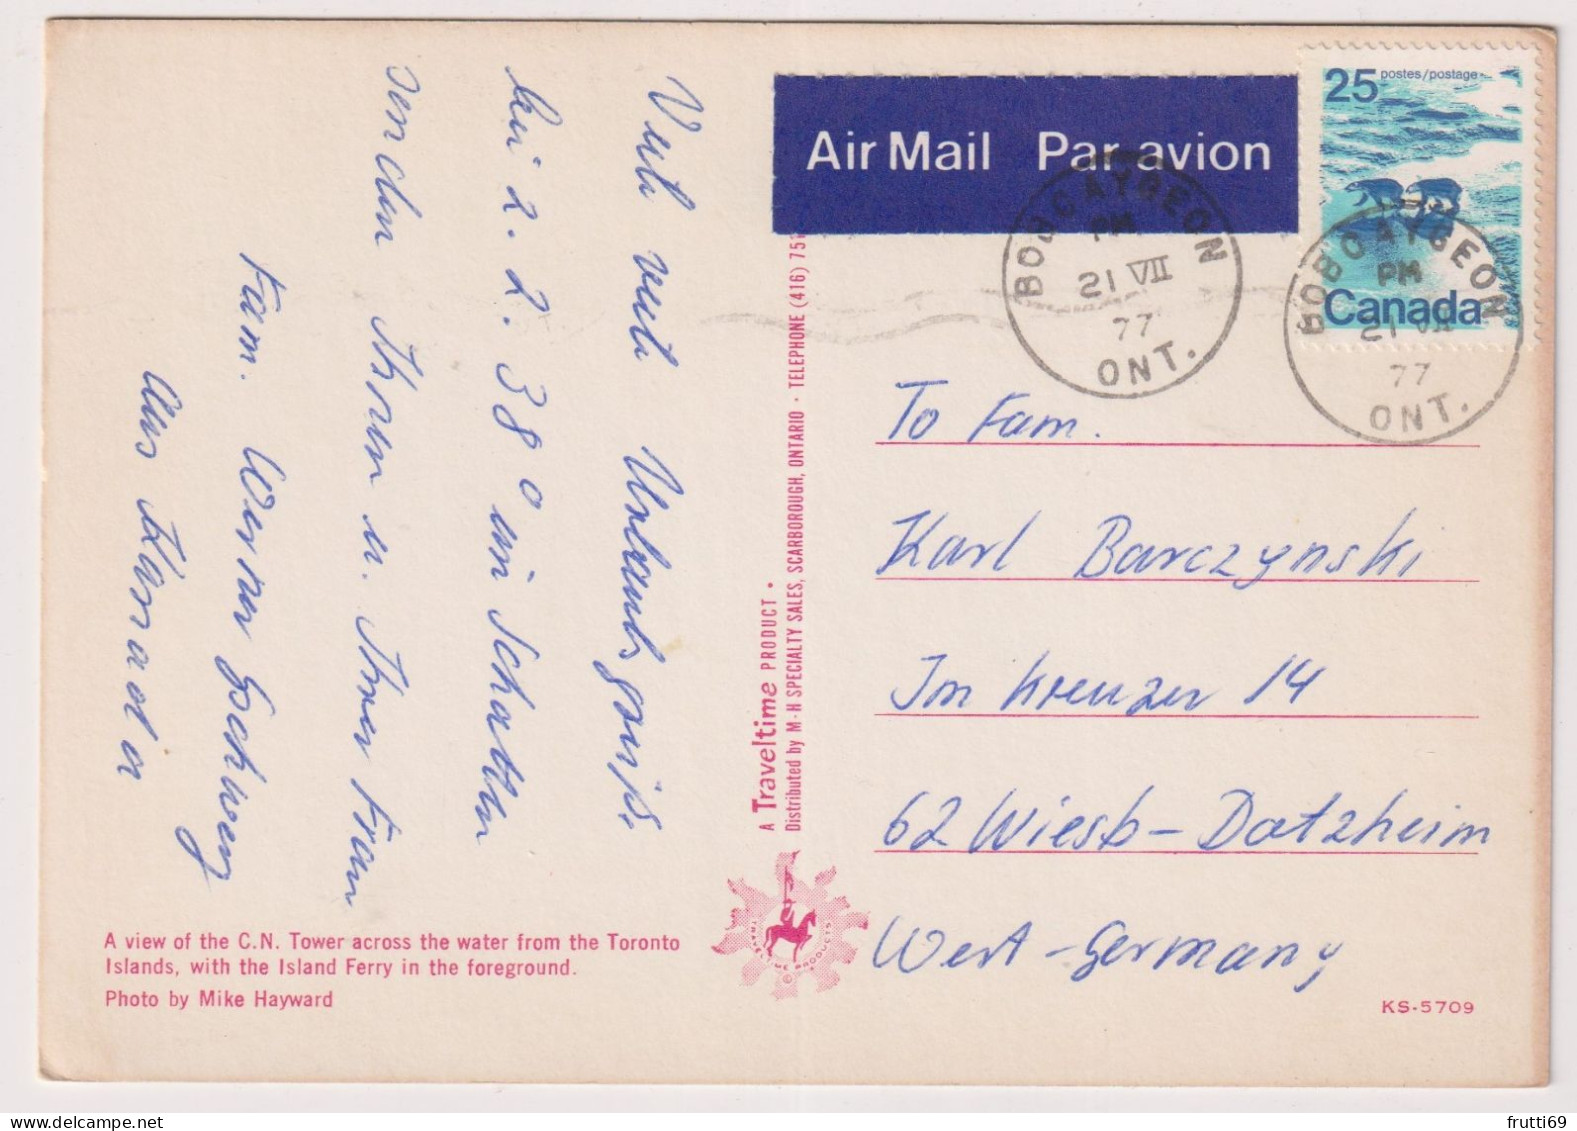 Viele viele Urlaubsgrüße
bei z. Z. 38° im Schatten
senden Ihnen u. Ihrer Fam
Fam. Werner
Aus Kanada
Air Mail Par avion
25 postes/postage
Canada
BOBCAYGEON
PM
21 VII
77
ONT.
BOBCAYGEON
PM
21 VII
77
ONT.
To Fam.
Karl Barczynski
Im Kreuzer 14
62 Wiesb-Dotzheim
West-Germany
A Traveltime PRODUCT •
Distributed by M-H SPECIALTY SALES, SCARBOROUGH, ONTARIO • TELEPHONE (416) 757
TRAVELTIME PRODUCTS ©
A view of the C.N. Tower across the water from the Toronto
Islands, with the Island Ferry in the foreground.
Photo by Mike Hayward
KS-5709
frutti69